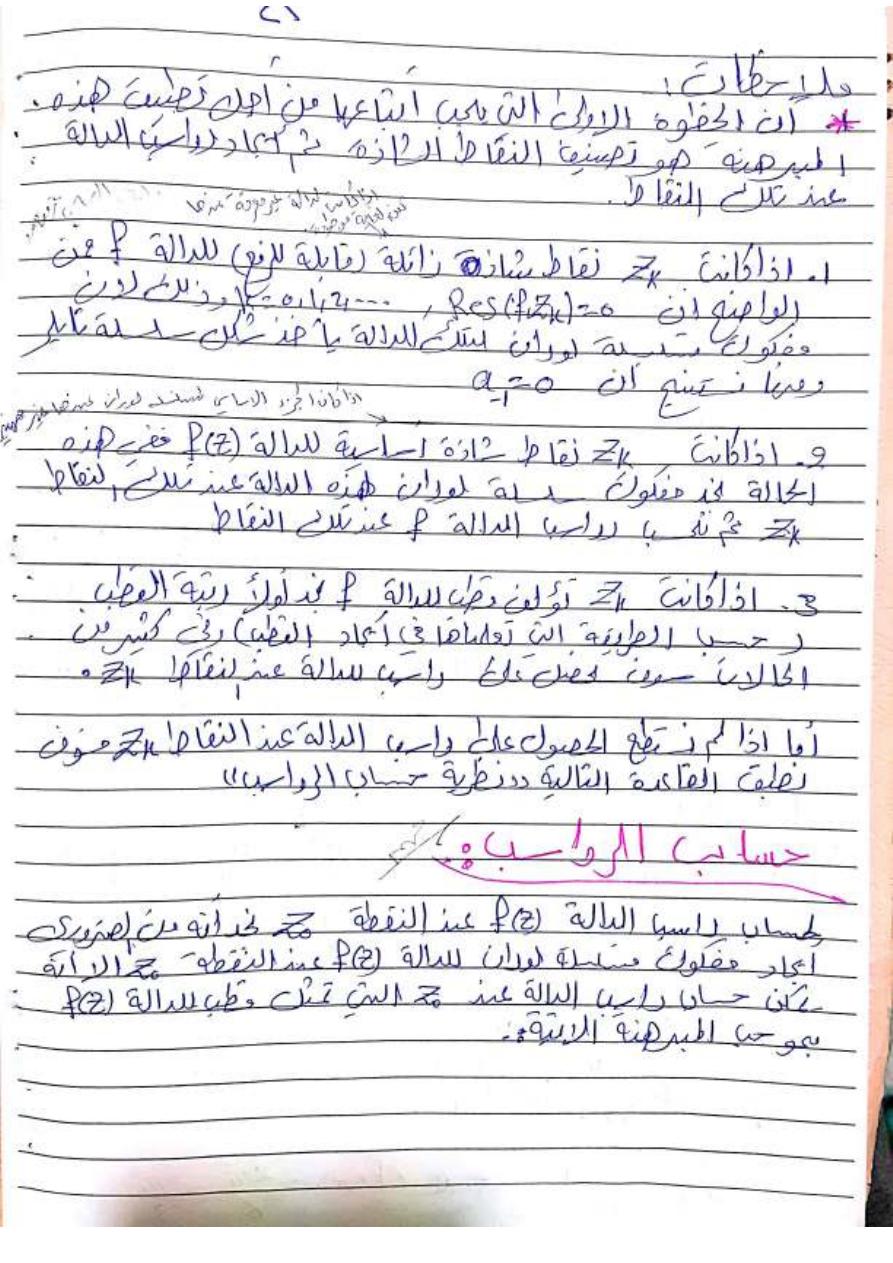 ملاحظات :
* أن الخطوة الاولى التي يجب اتباعها من اجل تطبيق هذه
المبرهنة هو تصنيف النقاط الشاذة ثم ايجاد رواسب الدالة
عند تلك النقاط.
اذا كانت الدالة غير معرفة عندها
1. اذا كانت Zk نقاط شاذة زائلة (قابلة للرفع) للدالة f فمن
الواضح ان Res(f,Zk)=0 , k=0,1,2,... وذلك لان
مفكوك متسلسلة لوران لتلك الدالة يأخذ شكل سلسلة تايلر
ومنها نستنتج أن a-1=0
اذا كان الجزء الاساسي لمتسلسلة لوران عندها غير
2. اذا كانت Zk نقاط شاذة اساسية للدالة f(z) ففي هذه
الحالة نجد مفكوك سلسلة لوران هذه الدالة عند تلك النقاط
Zk ثم نحسب رواسب الدالة f عند تلك النقاط
3. اذا كانت Zk تؤلف قطب للدالة f نجد أولاً رتبة القطب
(حسب الطريقة التي تعلمناها في ايجاد القطب) وفي كثير من
الحالات سوف نحصل على راسب للدالة عند النقاط Zk .
أما اذا لم نستطع الحصول على راسب الدالة عند النقاط Zk سوف
نطبق القاعدة التالية "نظرية حساب الرواسب"
حساب الرواسب :
لحساب راسب الدالة f(z) عند النقطة z0 نجد أنه من الضروري
ايجاد مفكوك متسلسلة لوران للدالة f(z) عند النقطة z0 الا أنه
يمكن حساب راسب الدالة عند z0 التي تمثل قطب للدالة f(z)
بموجب المبرهنة الاتية :